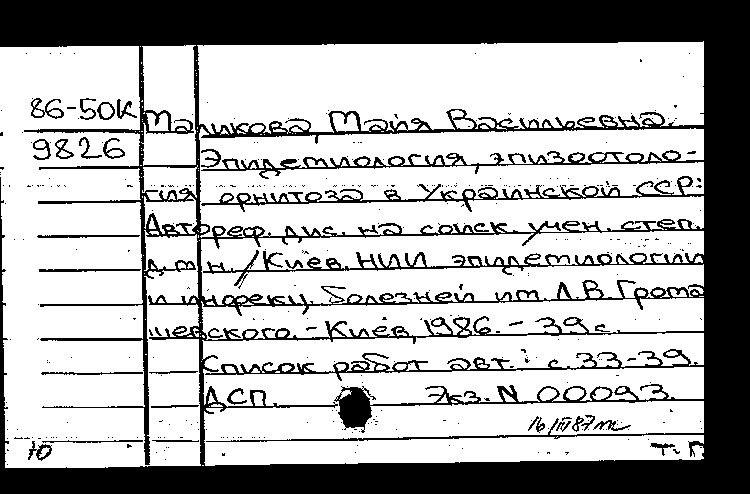 86-50К
9826
Маликова, Майя Васильевна.
Эпидемиология, эпизоотоло-
гия орнитоза в Украинской ССР:
Автореф. дис. на соиск. учен. степ.
д.м.н. / Киев. НИИ эпидемиологии
и инфекц. болезней им. Л.В. Грома
шевского. - Киев, 1986. - 39 с.
Список работ авт.: с. 33-39.
ДСП. Экз. N 00093.
16/III 87
10